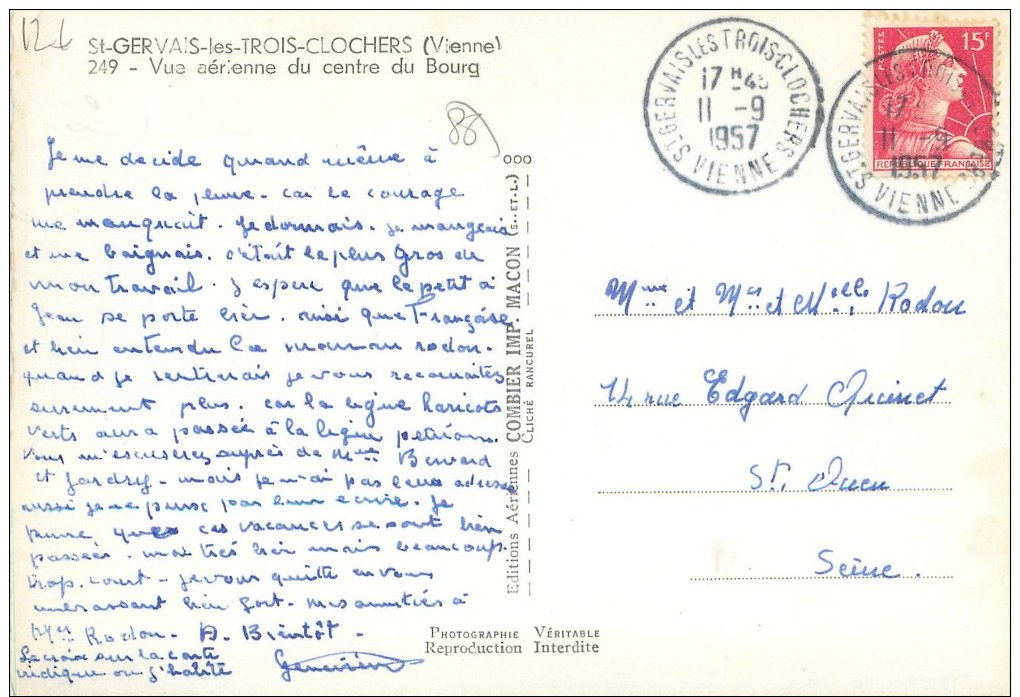 12
St-GERVAIS-les-TROIS-CLOCHERS (Vienne)
249 - Vue aérienne du centre du Bourg
88
Je me decide quand même à
prendre la plume. car le courage
me manquait. Je dormais. je mangeais
et me baignais. c'était le plus Gros de
mon travail. J'espere que le petit à
Jean se porte bien. ainsi que Françoise
et bien entendu la maman rodon.
quand je rentrerais je vous reconnaitez
surement plus. car la ligne haricots
verts aura passée à la ligne
Vous m'escuserez auprès de Mme
et mais je n'ai pas leur adresse
aussi je ne puise pas leur ecrire. Je
que ces vacances se sont bien
passées. moi très bien mais beaucoup
trop. court - je vous quitte en vous
embrassant bien fort. mes amitiés à
Mr Rodon. A. Bientôt -
La croix sur la carte
indique ou j'habite
Geneviève
ooo
Editions Aériennes COMBIER IMP. MACON (S.-ET-L.)
CLICHÉ RANCUREL
PHOTOGRAPHIE VÉRITABLE
Reproduction Interdite
ST GERVAIS LES TROIS CLOCHERS
17 H 45
11 - 9
1957
VIENNE
POSTES
15F
REPUBLIQUE FRANÇAISE
ST GERVAIS LES TROIS
17
11 - 9
1957
VIENNE
Mme et Mr et Melle, Rodon
14 rue Edgard Quinet
St, Ouen
Seine.